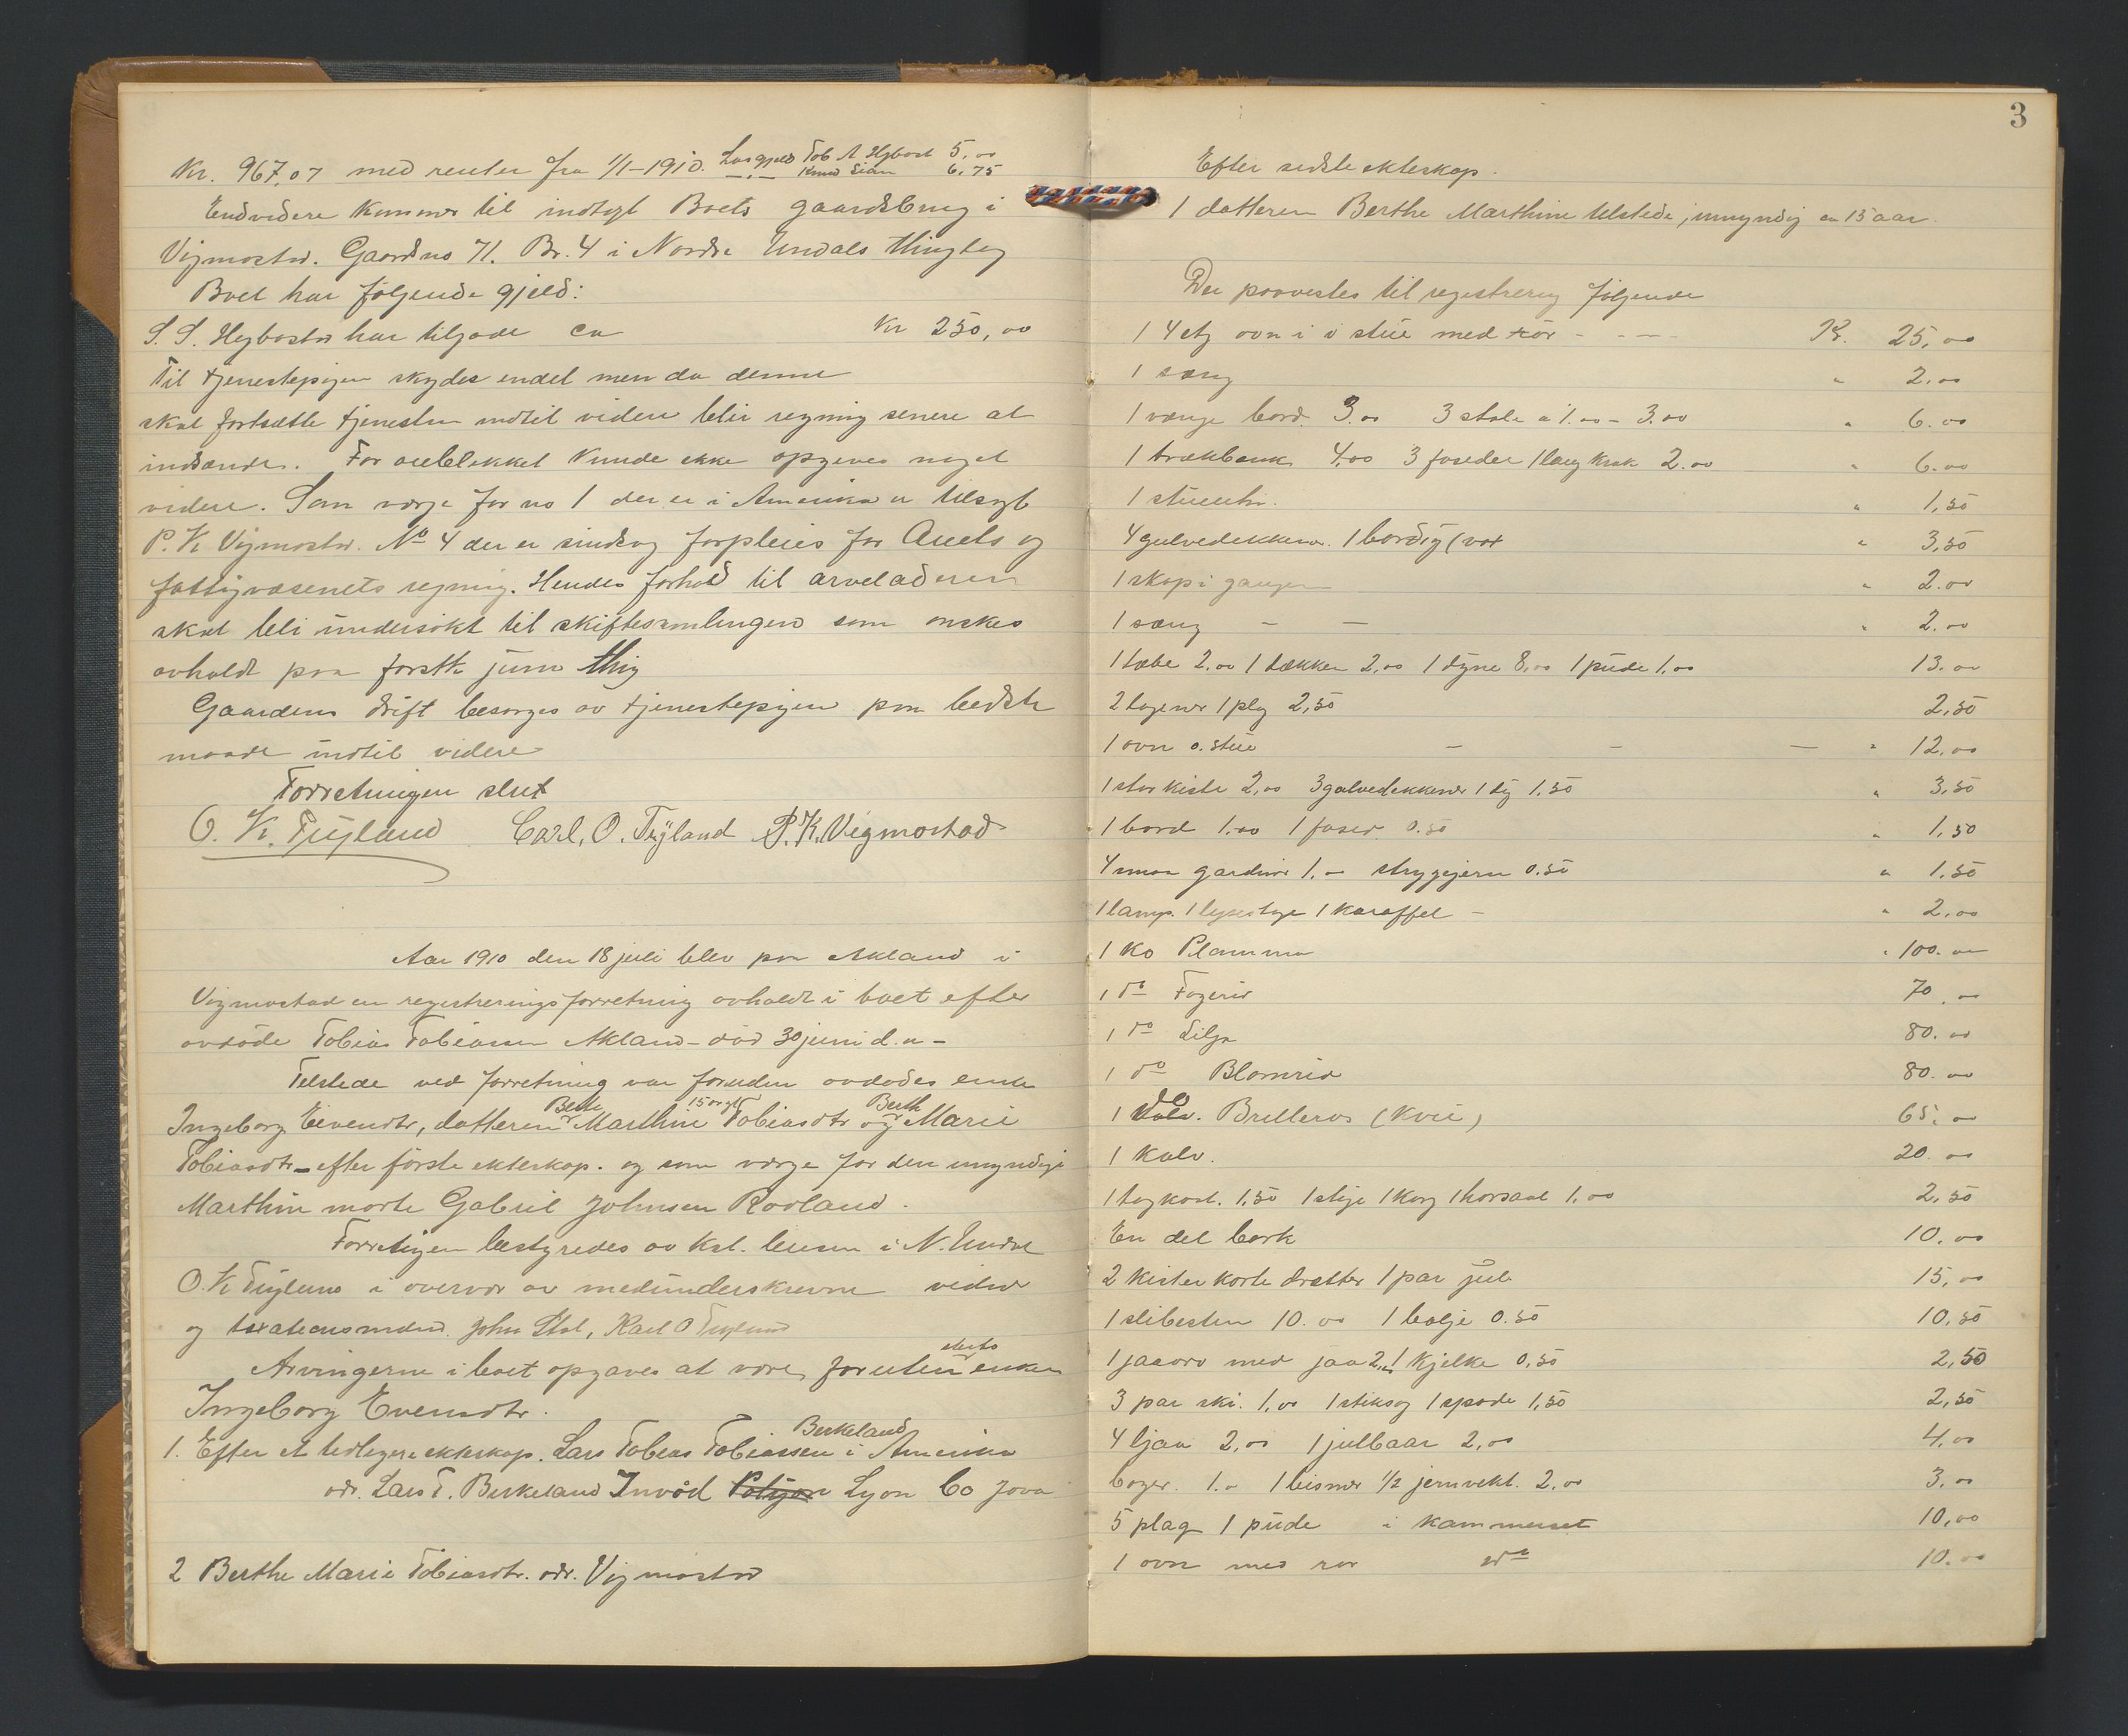 Kr. 967,07 med renter fra 1/1-1910. Tob A 5,00
Knud 6,75
Endvidere kommer til indtægt Boets gaardsbrug i
Vigmostad. Gaardsno 71. Br. 4 i Nordre Undals thinglag
Boet har følgende gjeld:
S. S. Hegbostad har tilgode ca Kr 250,00
Til tjenestepigen skydes endel men da denne
skal fortsætte tjenesten indtil videre blir regning senere at
indsende. For øieblikket kunde ikke opgives noget
videre. Som værge for no 1 der er i Amerika er tilsagt
P. K Vigmostad. No 4 der er sindsyg forpleies for Amts og
fattigvæsenets regning. Hendes forhold til arveladeren
skal bli undersøkt til skiftesamlingen som ønskes
avholdt paa førstk juni thing
Gaardens drift besørges av tjenestepigen paa bedste
maade indtil videre
Forretningen slut
O. K. Trÿland Carl, O. Trÿland P. K. Vigmostad
Aar 1910 den 18 juli blev paa Akland i
Vigmostad en registreringsforretning avholdt i boet efter
avdøde Tobias Tobiassen Akland - død 30 juni d. a -
Tilstede ved forretning var foruden avdødes enke
Ingeborg Eivendtr, datteren Berte Marthine 15 aar gl Tobiasdtr og Berth Marie
Tobiasdtr - efter første ekteskap. og som værge for den umyndige
Marthine møtte Gabriel Johnsen Rooland.
Forretningen bestyredes av kst. lensm i N. Undal
O. K Tryland i overvær av medunderskrevne vidner
og taxationsmænd. John Stol, Karl O Tryland
Arvingerne i boet opgaves at være, foruten enken
Ingeborg Evensdtr.
1. Efter et tidligere ekteskap. Lars Tobias Tobiassen Berkeland i Amerika
adr. Lars T. Berkeland Invød Lyon Co Jova
2 Berthe Marie Tobiasdtr. adr. Vigmostad
3
Efter sidste ekteskap.
1 datteren Berthe Marthine tilstede, umyndig ca 15 aar.
Der paavistes til registrering følgende
1 4etg ovn i v stue med rør - - - - Kr. 25,00
1 sæng " 2.00
1 vænge bord 3.00 3 stole a 1.00 - 3.00 " 6.00
1 trækbænk 4,00 3 1 lang krak 2.00 " 6.00
1 stueuhr. " 1,50
4 gulvedekkener. 1 borddug (vox " 3,50
1 skap i gangen " 2.00
1 sæng - - " 2.00
1 tæbe 2.00 1 tækken 2,00 1 dyne 8,00 1 pude 1,00 13.00
2 lagener 1 plag 2,50 2,50
1 ovn ø. stue - - - " 12,00
1 stor kiste 2,00 3 gulvedekkener 1 dug 1.50 " 3,50
1 bord 1.00 1 0.50 " 1,50
4 smaa gardiner 1.- strygejern 0.50 " 1.50
1 lamp. 1 lysestage 1 karaffel - " 2,00
1 Ko Plamma " 100.00
1 do Fagerid 70,00
1 do Lilja 80.00
1 do Blomrid 80.00
1 do Brilleros (kvie) 65,00
1 Kalv. 20.00
1 1,50 1 stige 1 korg 1 1,00 2,50
En del bark 10,00
2 kister korte dretter 1 par jul 15,00
1 slibesten 10.00 1 balje 0.50 10,50
1 med 2,00 1 kjelke 0,50 2,50
3 par ski. 1,00 1 stiksag 1 spade 1,50 2,50
4 ljaa 2,00 1 julbaar 2,00 4,00
bøger. 1.- 1 bismer 1/2 jernvekt. 2,00 3,00
5 plag 1 pude i kammerset 10,00
1 ovn med rør do 10.00